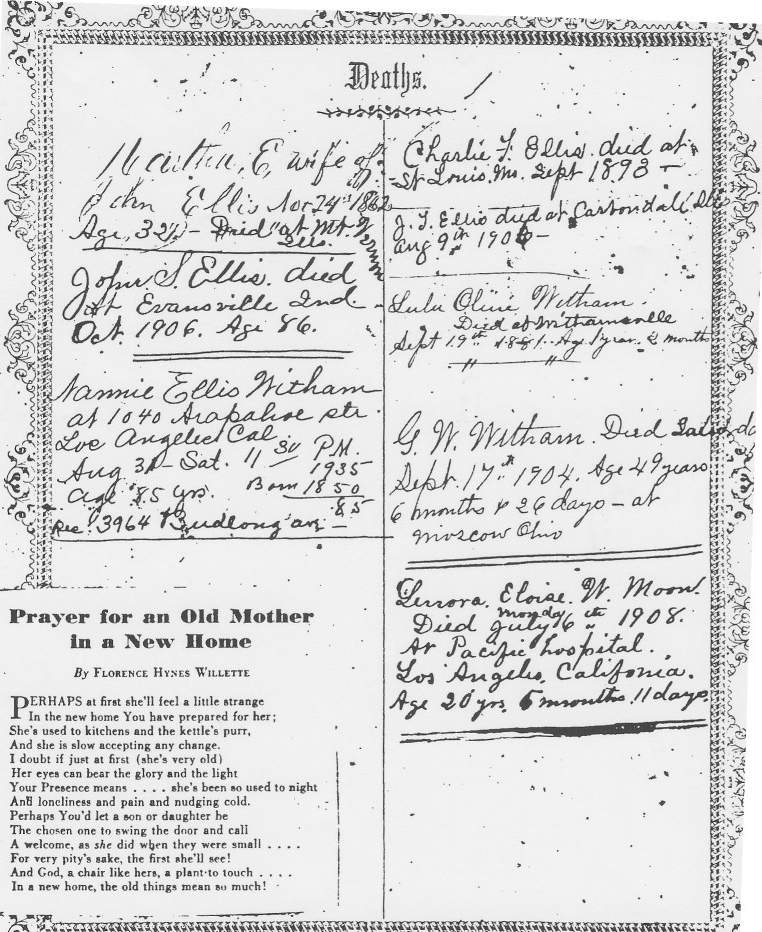 Deaths.
Martha, E, wife of
John Ellis Nov 24th 1862
Age, 32 - Died at Mt. Vernon
Ills.
John. S. Ellis. died
at Evansville Ind.
Oct. 1906. Age 86.
Nannie Ellis Witham
at 1040 Arapahoe str.
Los Angeles Cal
Aug 31 - Sat. 11 30 P.M.
1935
age 85 yrs. Born 1850
85
Res. 3964 Budlong ave -
Prayer for an Old Mother
in a New Home
By FLORENCE HYNES WILLETTE
PERHAPS at first she'll feel a little strange
In the new home You have prepared for her;
She's used to kitchens and the kettle's purr,
And she is slow accepting any change.
I doubt if just at first (she's very old)
Her eyes can bear the glory and the light
Your Presence means . . . . she's been so used to night
And loneliness and pain and nudging cold.
Perhaps You'd let a son or daughter be
The chosen one to swing the door and call
A welcome, as she did when they were small . . . .
For very pity's sake, the first she'll see!
And God, a chair like hers, a plant to touch . . . .
In a new home, the old things mean so much!
Charlie F. Ellis died at
St Louis, Mo. Sept 1893 -
J. T. Ellis died at Carbondale Ills
Aug 9th 1906 -
Lulu Cline Witham.
Died at Withamsville
Sept 19th 1881. Age 1 year. 2 months
" "
G. W. Witham. Died
Sept. 17th 1904. Age 49 years
6 months & 26 days - at
Moscow Ohio
Lenora. Eloise. W. Moon.
Died Monday July 6th 1908.
At Pacific hospital.
Los Angeles, California.
Age 20 yrs. 6 months. 11 days.